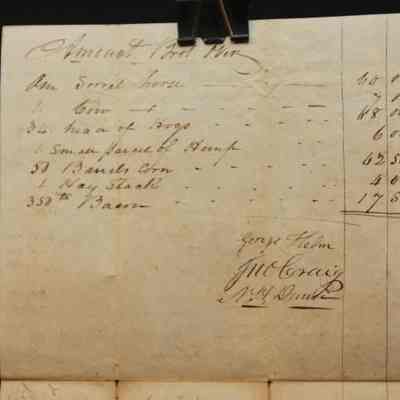 Amount Brot Over
One Sorrel horse 60 0
1 Cow 7 0
34 head of Hogs 48 0
1 Small parcel of Hemp 6 0
50 Barrels Corn 62 5
1 Hay Stack 4 0
350 lb Bacon 17 5
George Helm
Jno Craig